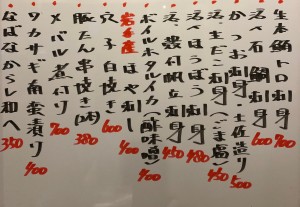 生本鮪トロ刺 700
活〆石鯛刺 600
かつお刺身・土佐造り 500
生まだこ刺身(ごま塩) 450
活〆ほうぼう刺身 480
活〆殻付帆立刺身 450
ボイルホタルイカ(酢味噌) 400
岩手産ほや刺し 400
穴子白焼き 600
豚たん串焼き(2本) 380
メバル煮付け 700
ワカサギ南蛮漬け 400
なばなからし和へ 350